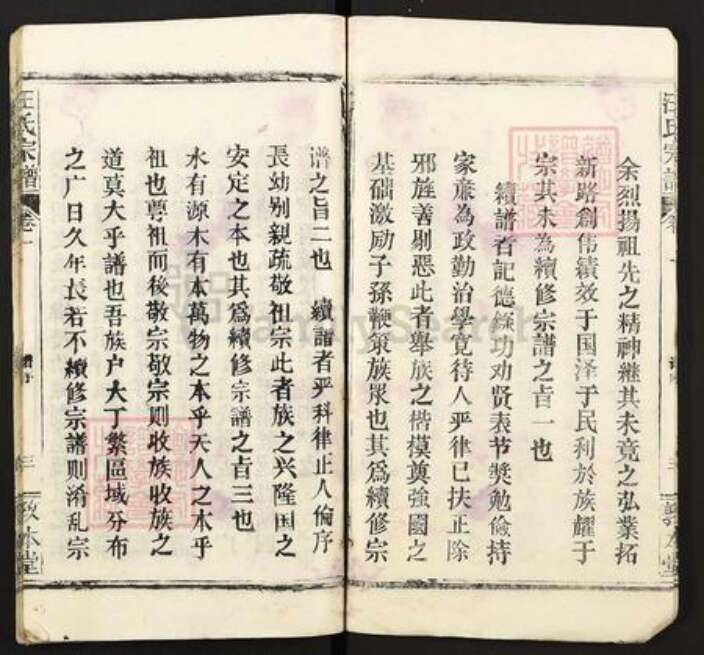 余烈揚祖先之精神継其未竟之弘業拓
新路創伟績效于国泽于民利於族耀于
宗其未為續修宗譜之旨一也
續譜者記德叙功劝贤表节奖勉儉持
家亷為政勤治學寛待人严律已扶正除
邪旌善剔惡此者舉族之楷摸奠強國之
基础激励子孫鞭策族眾也其爲續修宗
谱之旨二也 續譜者严科律止人倫序
長幼别親疏敬祖宗此者族之兴隆国之
安定之本也其爲續修宗譜之旨三也
水有源木有本萬物之本乎天人之本乎
祖也尊祖而後敬宗敬宗則收族收族之
道莫大乎譜也吾族户大丁繁區域分布
之广日久年長若不續修宗譜则淆乱宗
汪氏宗譜
卷一
譜序
三
敦本堂
汪氏宗譜
敦本堂
FamilySearch